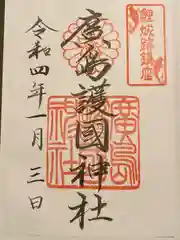 鯉城跡鎮座
廣島護國神社
令和四年一月三日
廣島
神社